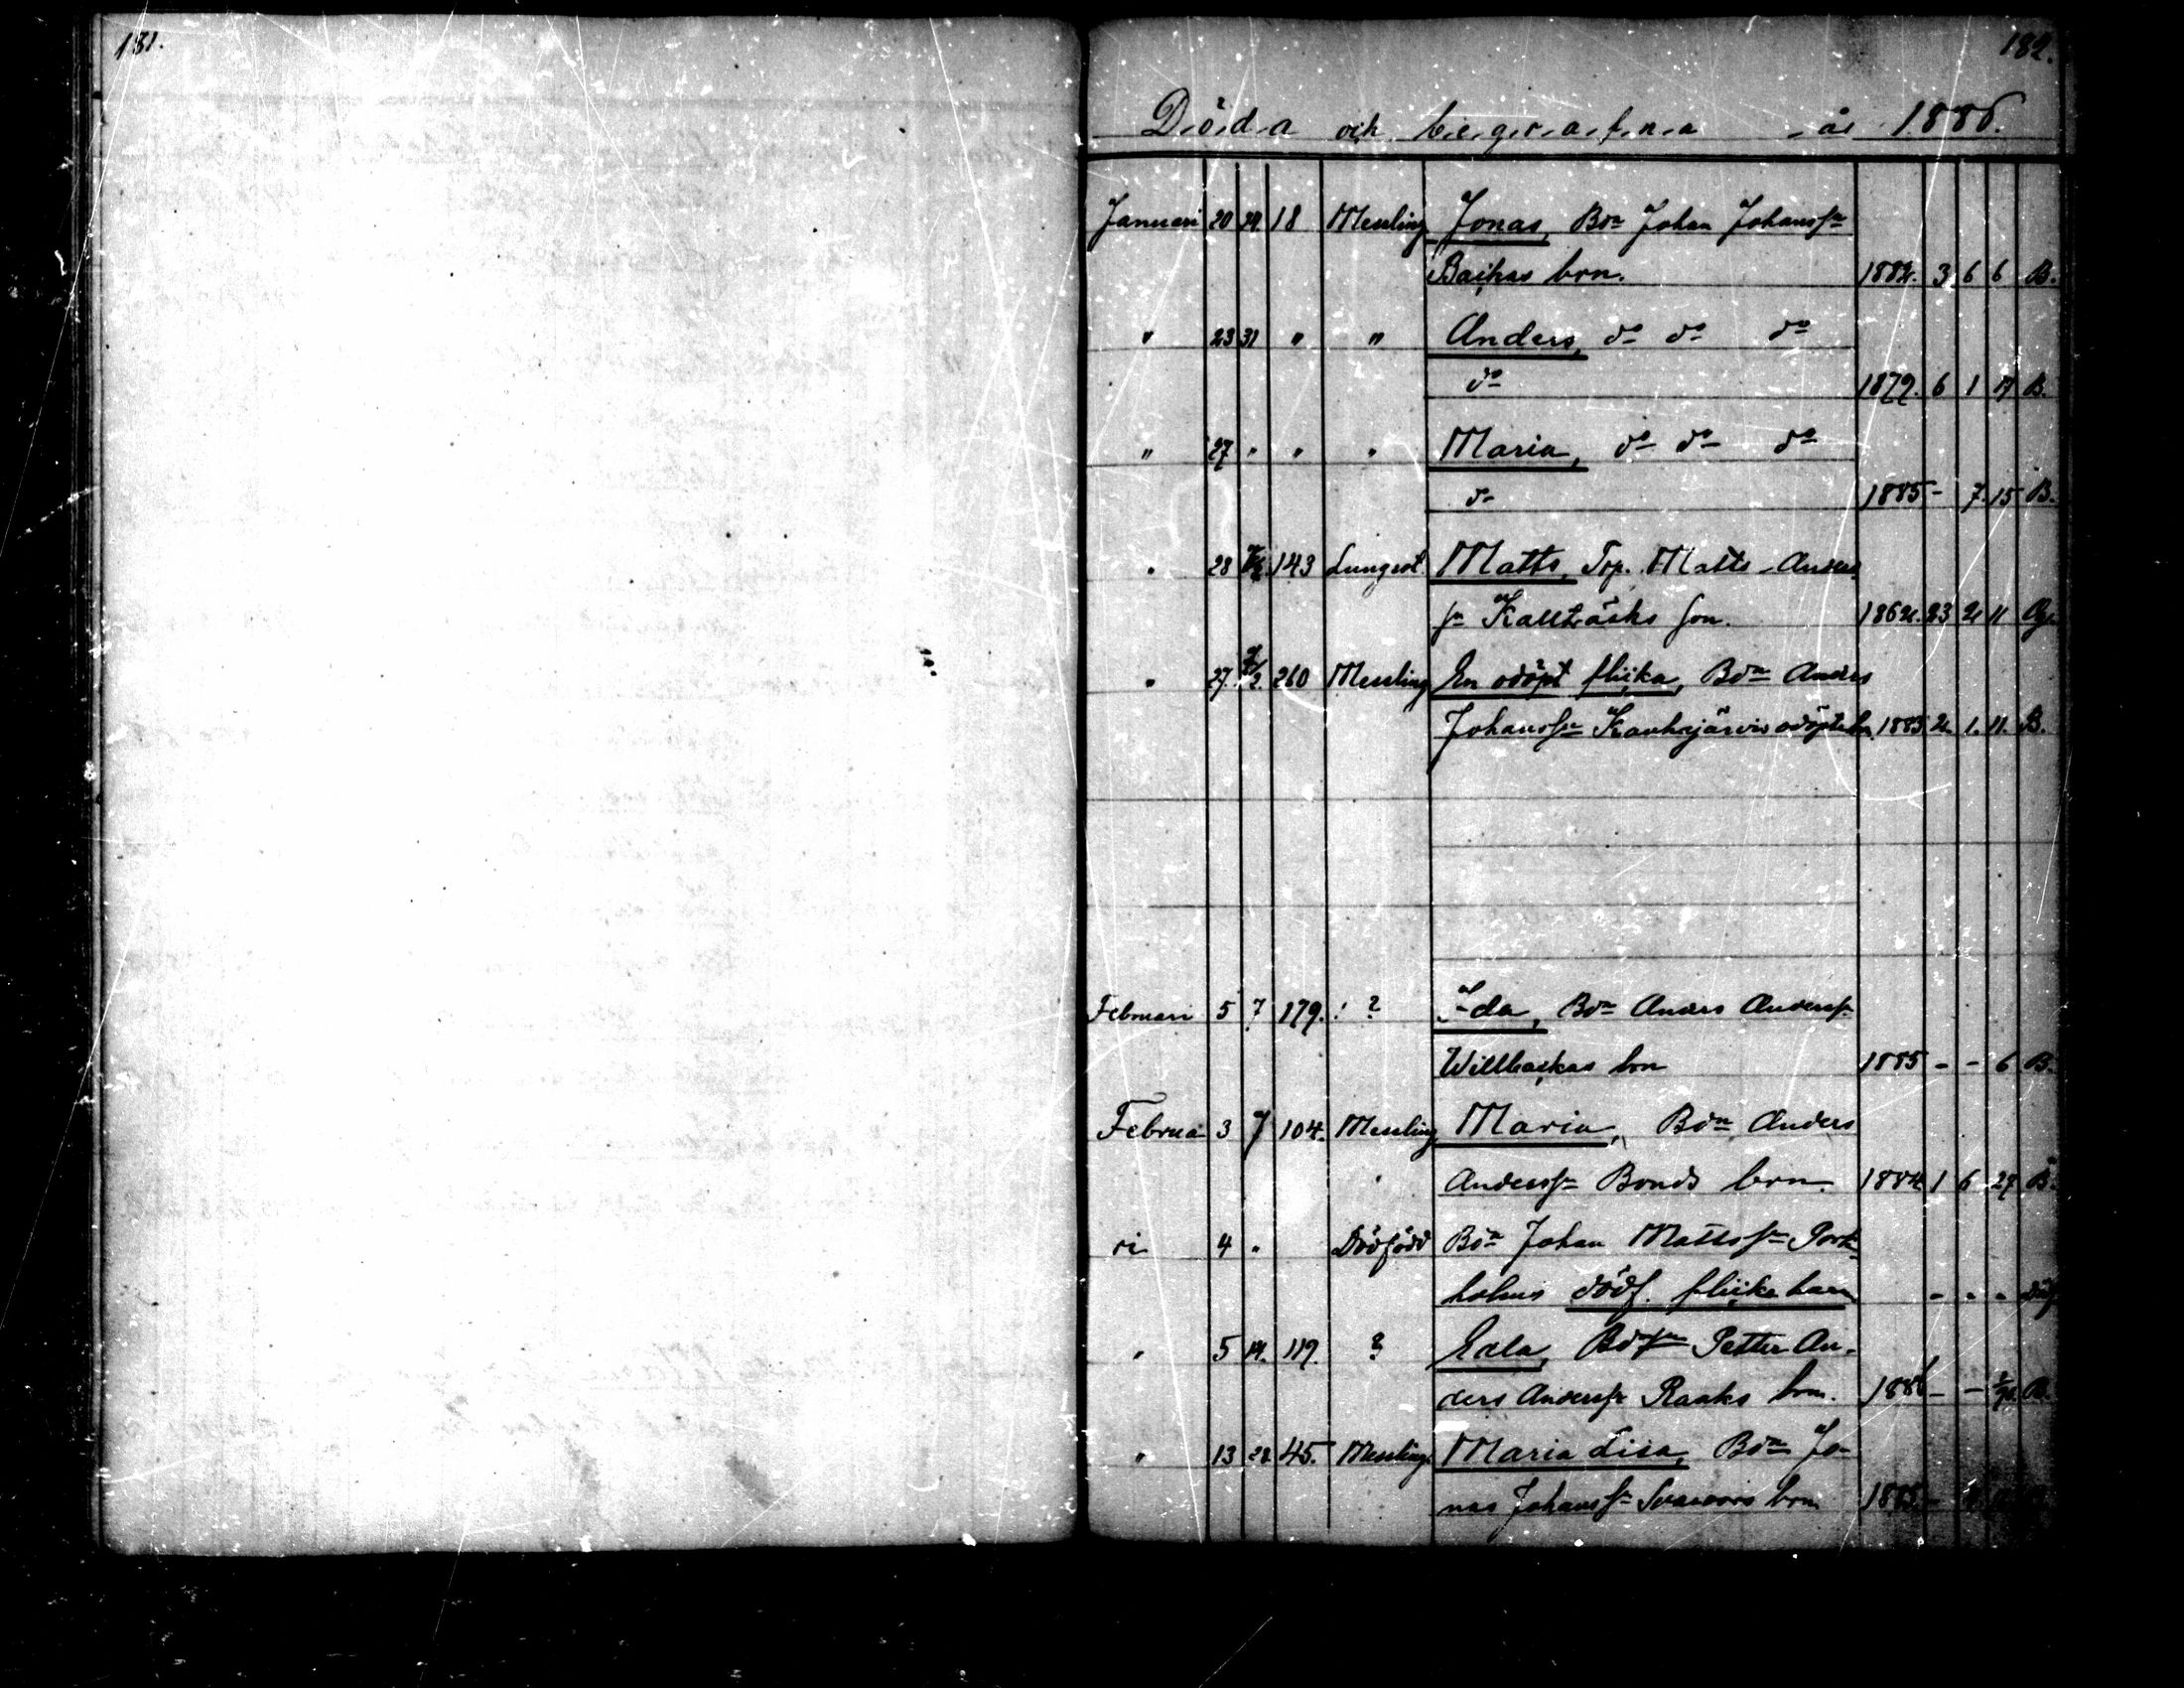 181.
182.
Döda och begrafna år 1886.
Januari 20 24. 18 Messling Jonas, Bdn Johan Johanssn
Backas brn. 1882. 3 6 6 B.
" 23 31 " " Anders, do do do
do 1879. 6 1 17 B.
" 27 " " " Maria, do do do
do 1885 - 7. 15 B.
" 28 143 Lungsot Matts, Trp. Matts Anders
sn Kallträsks son. 1862. 23 2 11 Og.
" 27. 7/2. 260 Messling En odöpt flicka, Bdn Anders
Johanssn Kauhajärvis odöpta bn. 1883 2. 1. 11. B.
Februari 5 7 179. ? Ida, Bdn Anders Anderssn
Willbackas brn 1885 - - 6 B.
Februa 3 7 104. Messling Maria, Bdn Anders
Anderssn Bonds brn. 1884 1 6 27 B.
ri 4 " Dödfödd Bdn Johan Mattssn Pork-
holms dödf. flickebarn - - - Dödf
" 5 14. 119. ? Edla, Bdsn Petter An-
ders Anderssn Raaks brn. 1886 - - B.
" 13 28. 45. Messling. Maria Lisa, Bdn Jo-
nas Johanssn brn 1885 -